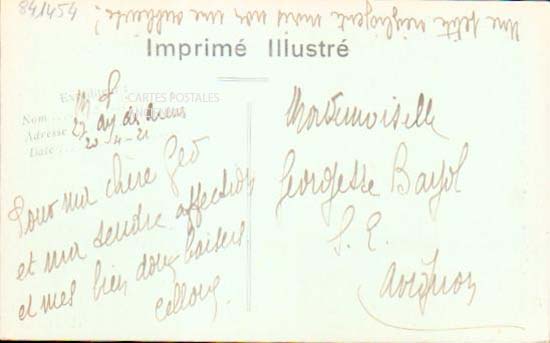 841454
Une petite négligente mais non une oublieuse !
Imprimé Illustré
Expéditeur :
CARTES POSTALES
ANCIENNES
Nom
Adresse 27 des
Date 20-4-21
Pour ma chère Geo
et ma tendre affection
et mes bien doux baisers
Mademoiselle
Georgette Bayol
S. E.
Avignon